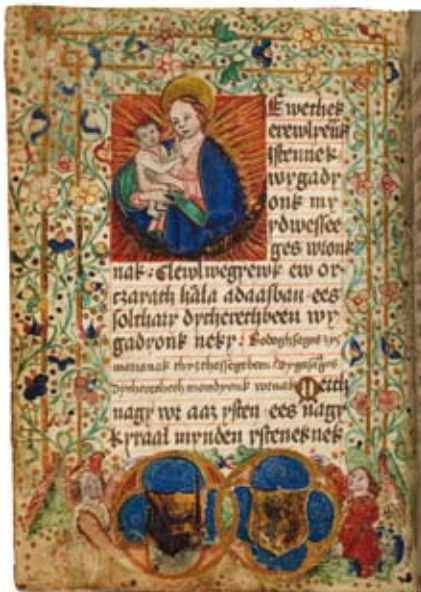 Ewethek
erewlyeűk
ystennek
wygady
onk my
ydwessee
ges wronk
nak : Elewlwegyewk ew or
czarath hála adaasban ees
solthary dycherethbeen wy
gadyonk neky : Bodoghsegos zyz
marianak thyzthessegeben
dycherethech mondyonk wrnak Merth
nagy wr aaz ysten ees nagy
kyraal mynden ysteneknek